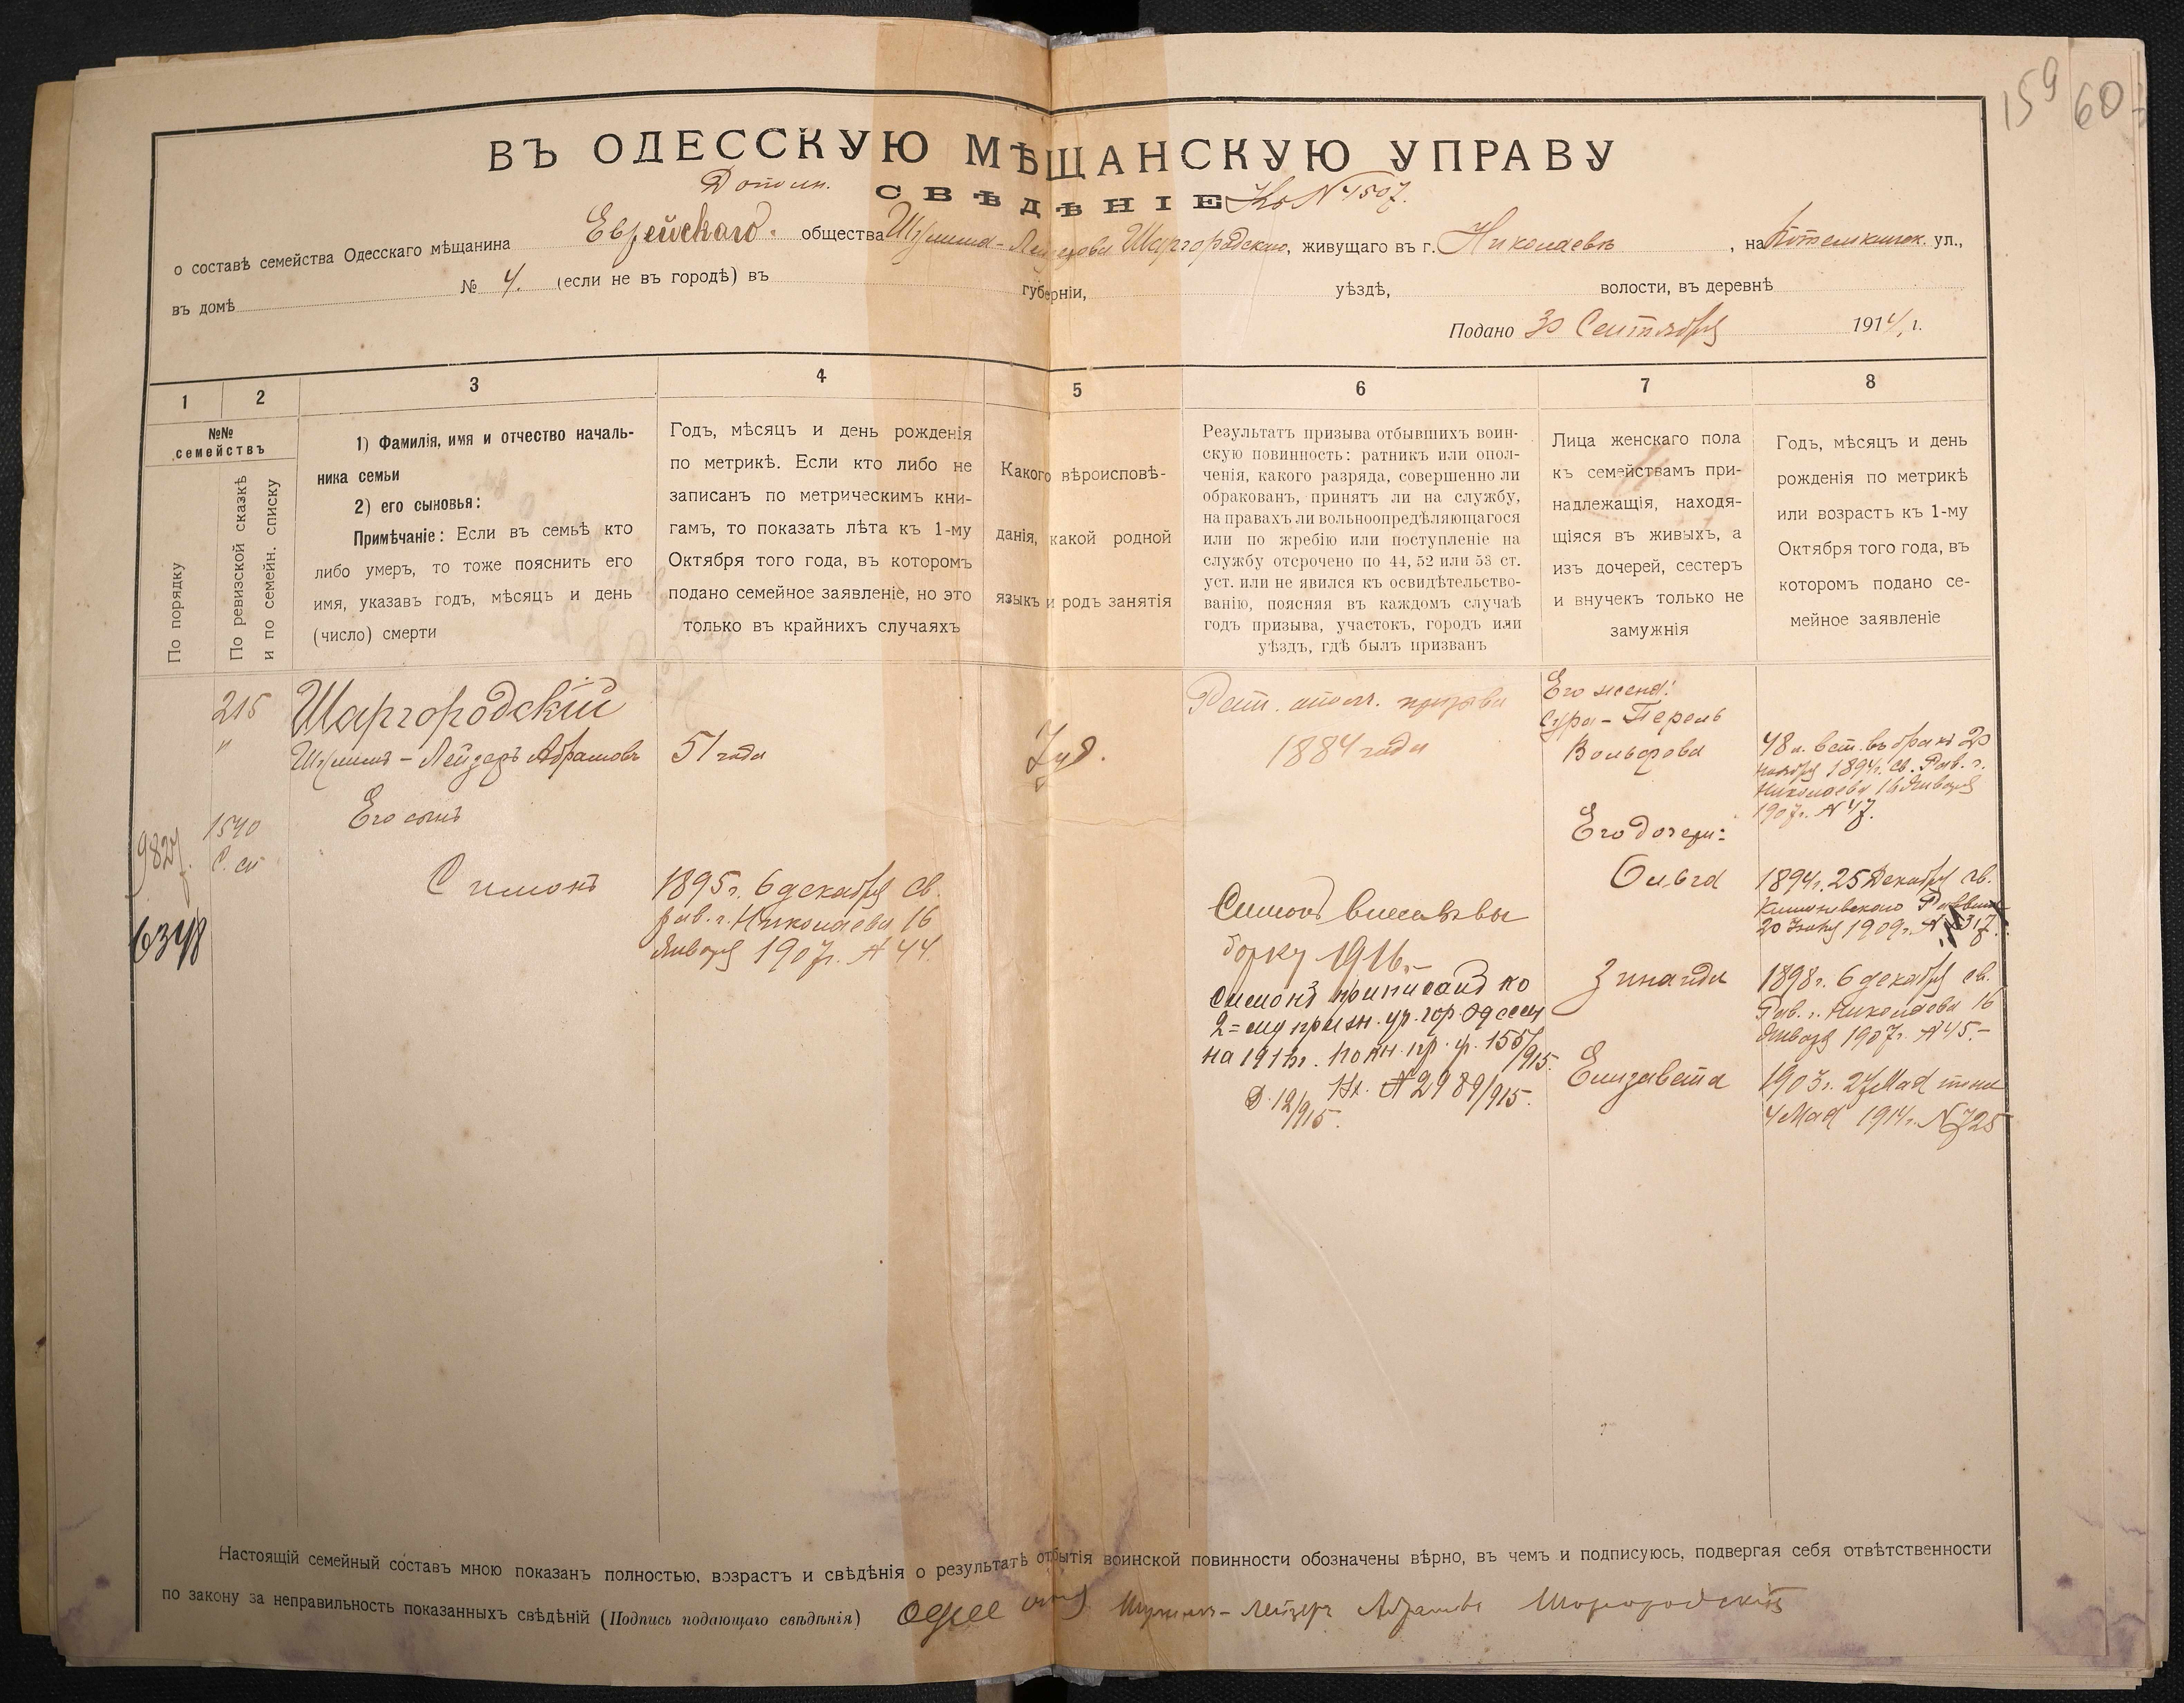 159 60
ВЪ ОДЕССКУЮ МѢЩАНСКУЮ УПРАВУ
Дополн. СВѢДѢНІЕ Къ № 4507.
о составѣ семейства Одесскаго мѣщанина Еврейскаго общества Шулима-Лейзера Шаргородскаго, живущаго въ г. Николаевѣ, на Потемкинск. ул.,
въ домѣ № 4. (если не въ городѣ) въ губерніи, уѣздѣ, волости, въ деревнѣ
Подано 30 Сентября 1914 г.
1 2 3 4 5 6 7 8
№№ семействъ
По порядку
По ревизской сказкѣ
и по семейн. списку
1) Фамилія, имя и отчество началь-
ника семьи
2) его сыновья:
Примѣчаніе: Если въ семьѣ кто
либо умеръ, то тоже пояснить его
имя, указавъ годъ, мѣсяцъ и день
(число) смерти
Годъ, мѣсяцъ и день рожденія
по метрикѣ. Если кто либо не
записанъ по метрическимъ кни-
гамъ, то показать лѣта къ 1-му
Октября того года, въ которомъ
подано семейное заявленіе, но это
только въ крайнихъ случаяхъ
Какого вѣроисповѣ-
данія, какой родной
языкъ и родъ занятія
Результатъ призыва отбывшихъ воин-
скую повинность: ратникъ или опол-
ченія, какого разряда, совершенно ли
обракованъ, принятъ ли на службу,
на правахъ ли вольноопредѣляющагося
или по жребію или поступленіе на
службу отсрочено по 44, 52 или 53 ст.
уст. или не явился къ освидѣтельство-
ванію, поясняя въ каждомъ случаѣ
годъ призыва, участокъ, городъ или
уѣздъ, гдѣ былъ призванъ
Лица женскаго пола
къ семействамъ при-
надлежащія, находя-
щіяся въ живыхъ, а
изъ дочерей, сестеръ
и внучекъ только не
замужнія
Годъ, мѣсяцъ и день
рожденія по метрикѣ
или возрастъ къ 1-му
Октября того года, въ
которомъ подано се-
мейное заявленіе
215 Шаргородскій
" Шулимъ-Лейзеръ Абрамовъ 51 года
Іуд.
Рат. ополч. призыва
1884 года
Его жена:
Сура-Перель
Вольфова
48 л. вст. въ бракъ 20
ноября 1894 г. св. Рав. г.
Николаева 16 Января
1907 г. № 47.
9827.
6348
1540
С. сп
Его сынъ
Симонъ
1895 г. 6 декабря св.
рав. г. Николаева 16
Января 1907 г. № 44.
Симонъ внесенъ въ вы
борку 1916 г.
Симонъ приписанъ ко
2=му призн. уч. гор. Одессы
на 1915 г. по кн. пр. у. 155/915.
Вх. № 2989/915.
Д. 12/915.
Его дочери:
Ольга
1894 г. 25 Декабря св.
Кишиневскаго Раввина
20 1909 г. № 317.
Зинаида
1898 г. 6 декабря св.
Рав. г. Николаева 16
Января 1907 г. № 45.-
Елизавета
1903 г. 27 Мая
4 Мая 1914 г. № 725
Настоящій семейный составъ мною показанъ полностью, возрастъ и свѣдѣнія о результатѣ отбытія воинской повинности обозначены вѣрно, въ чемъ и подписуюсь, подвергая себя отвѣтственности
по закону за неправильность показанныхъ свѣдѣній (Подпись подающаго свѣдѣнія) Шулимъ-Лейзеръ Абрамовъ Шаргородскій